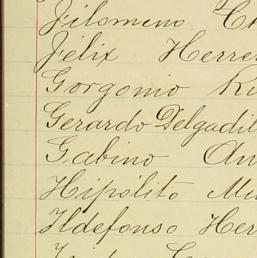 Filomeno
Félix Herre
Gorgonio
Gerardo Delgadil
Gabino An
Hipólito Mu
Ildefonso Her